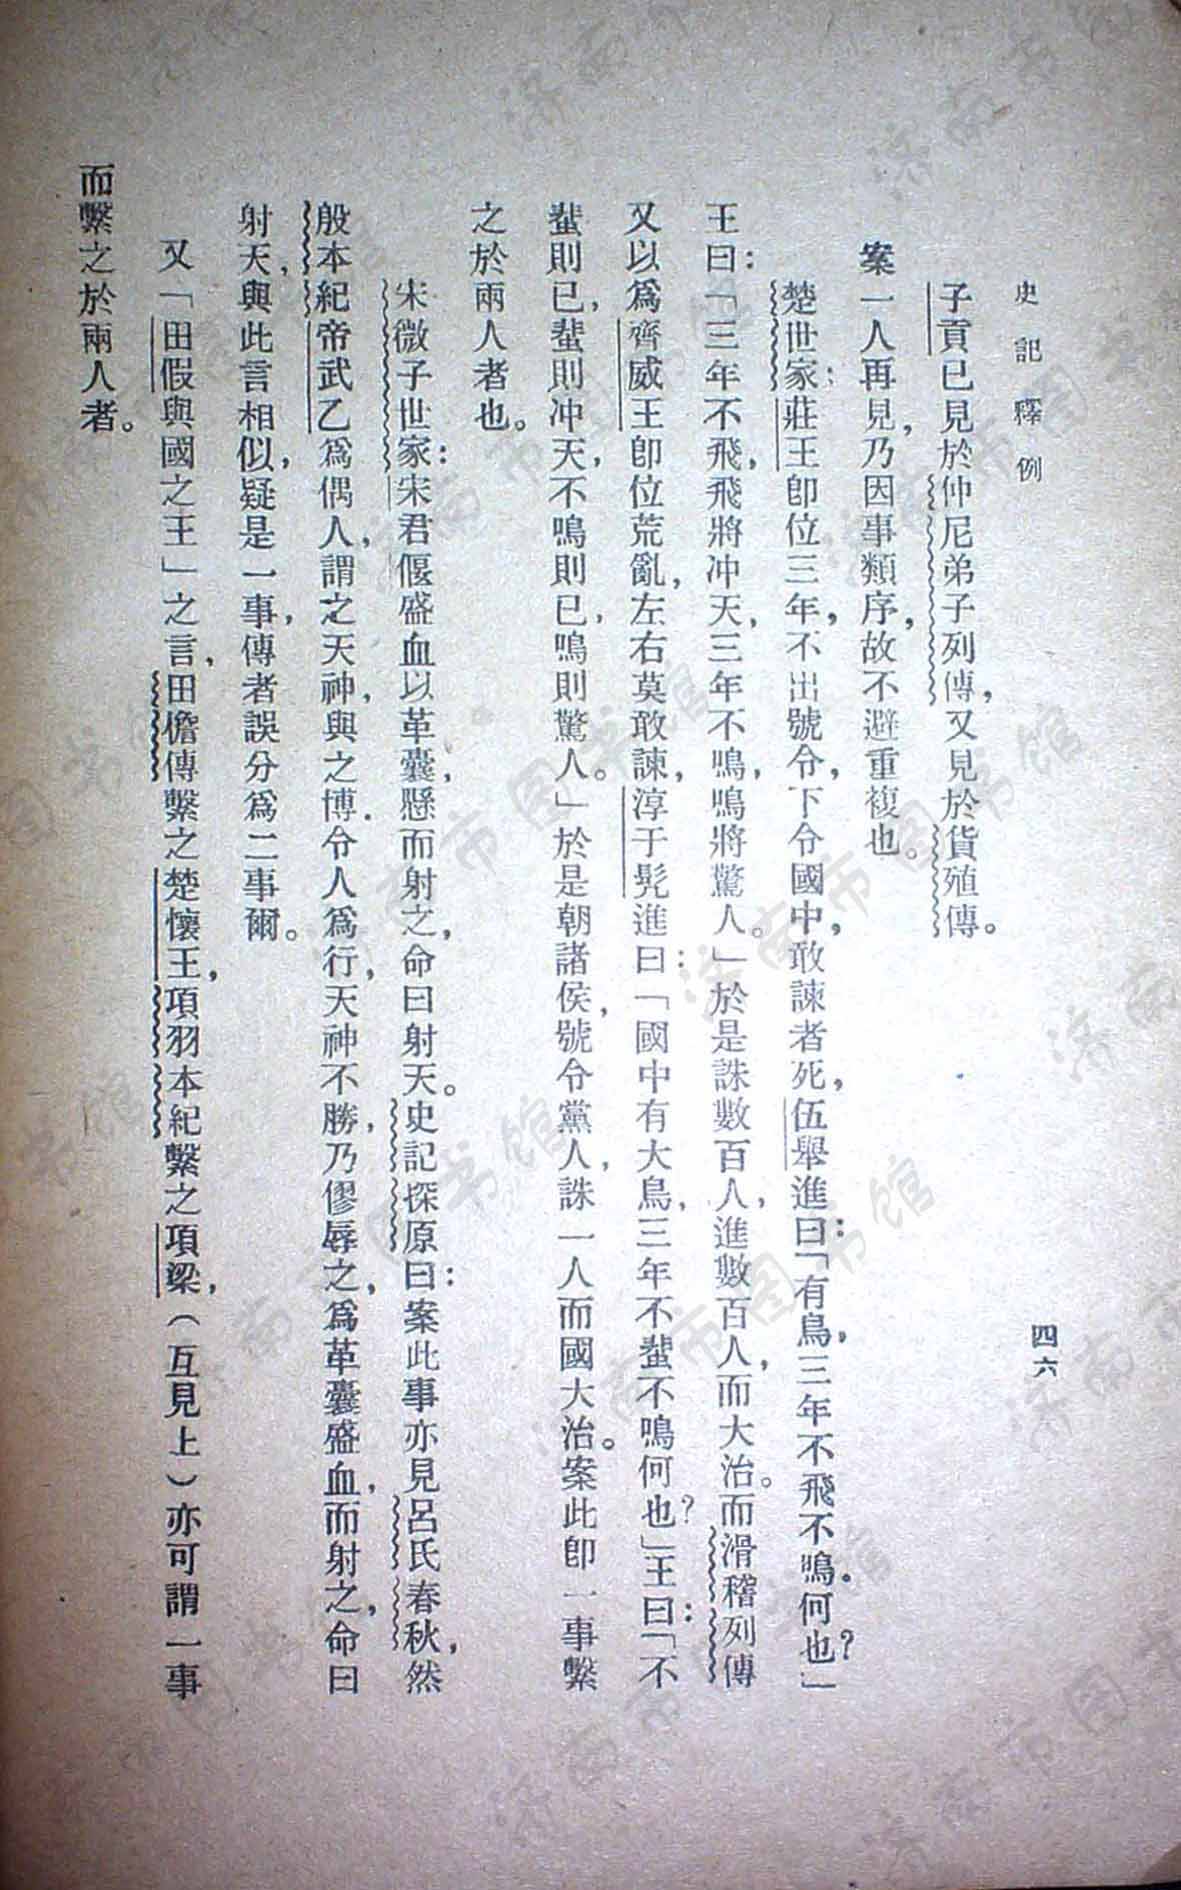 史記釋例
四六
子貢已見於仲尼弟子列傳，又見於貨殖傳。
案一人再見，乃因事類序，故不避重複也。
楚世家：莊王卽位三年，不出號令，下令國中，敢諫者死，伍舉進曰：「有鳥，三年不飛不鳴。何也？」
王曰：「三年不飛，飛將冲天，三年不鳴，鳴將驚人。」於是誅數百人，進數百人，而大治。而滑稽列傳
又以爲齊威王卽位荒亂，左右莫敢諫，淳于髡進曰：「國中有大鳥，三年不蜚不鳴何也？」王曰：「不
蜚則已，蜚則冲天，不鳴則已，鳴則驚人。」於是朝諸侯，號令黨人，誅一人而國大治。案此卽一事繫
之於兩人者也。
宋微子世家：宋君偃盛血以革囊，懸而射之，命曰射天。史記探原曰：案此事亦見呂氏春秋，然
殷本紀帝武乙爲偶人，謂之天神，與之博．令人爲行，天神不勝，乃僇辱之，爲革囊盛血，而射之，命曰
射天，與此言相似，疑是一事，傳者誤分爲二事爾。
又「田假與國之王」之言，田儋傳繫之楚懷王，項羽本紀繫之項梁，（互見上）亦可謂一事
而繫之於兩人者。
济南市图书馆